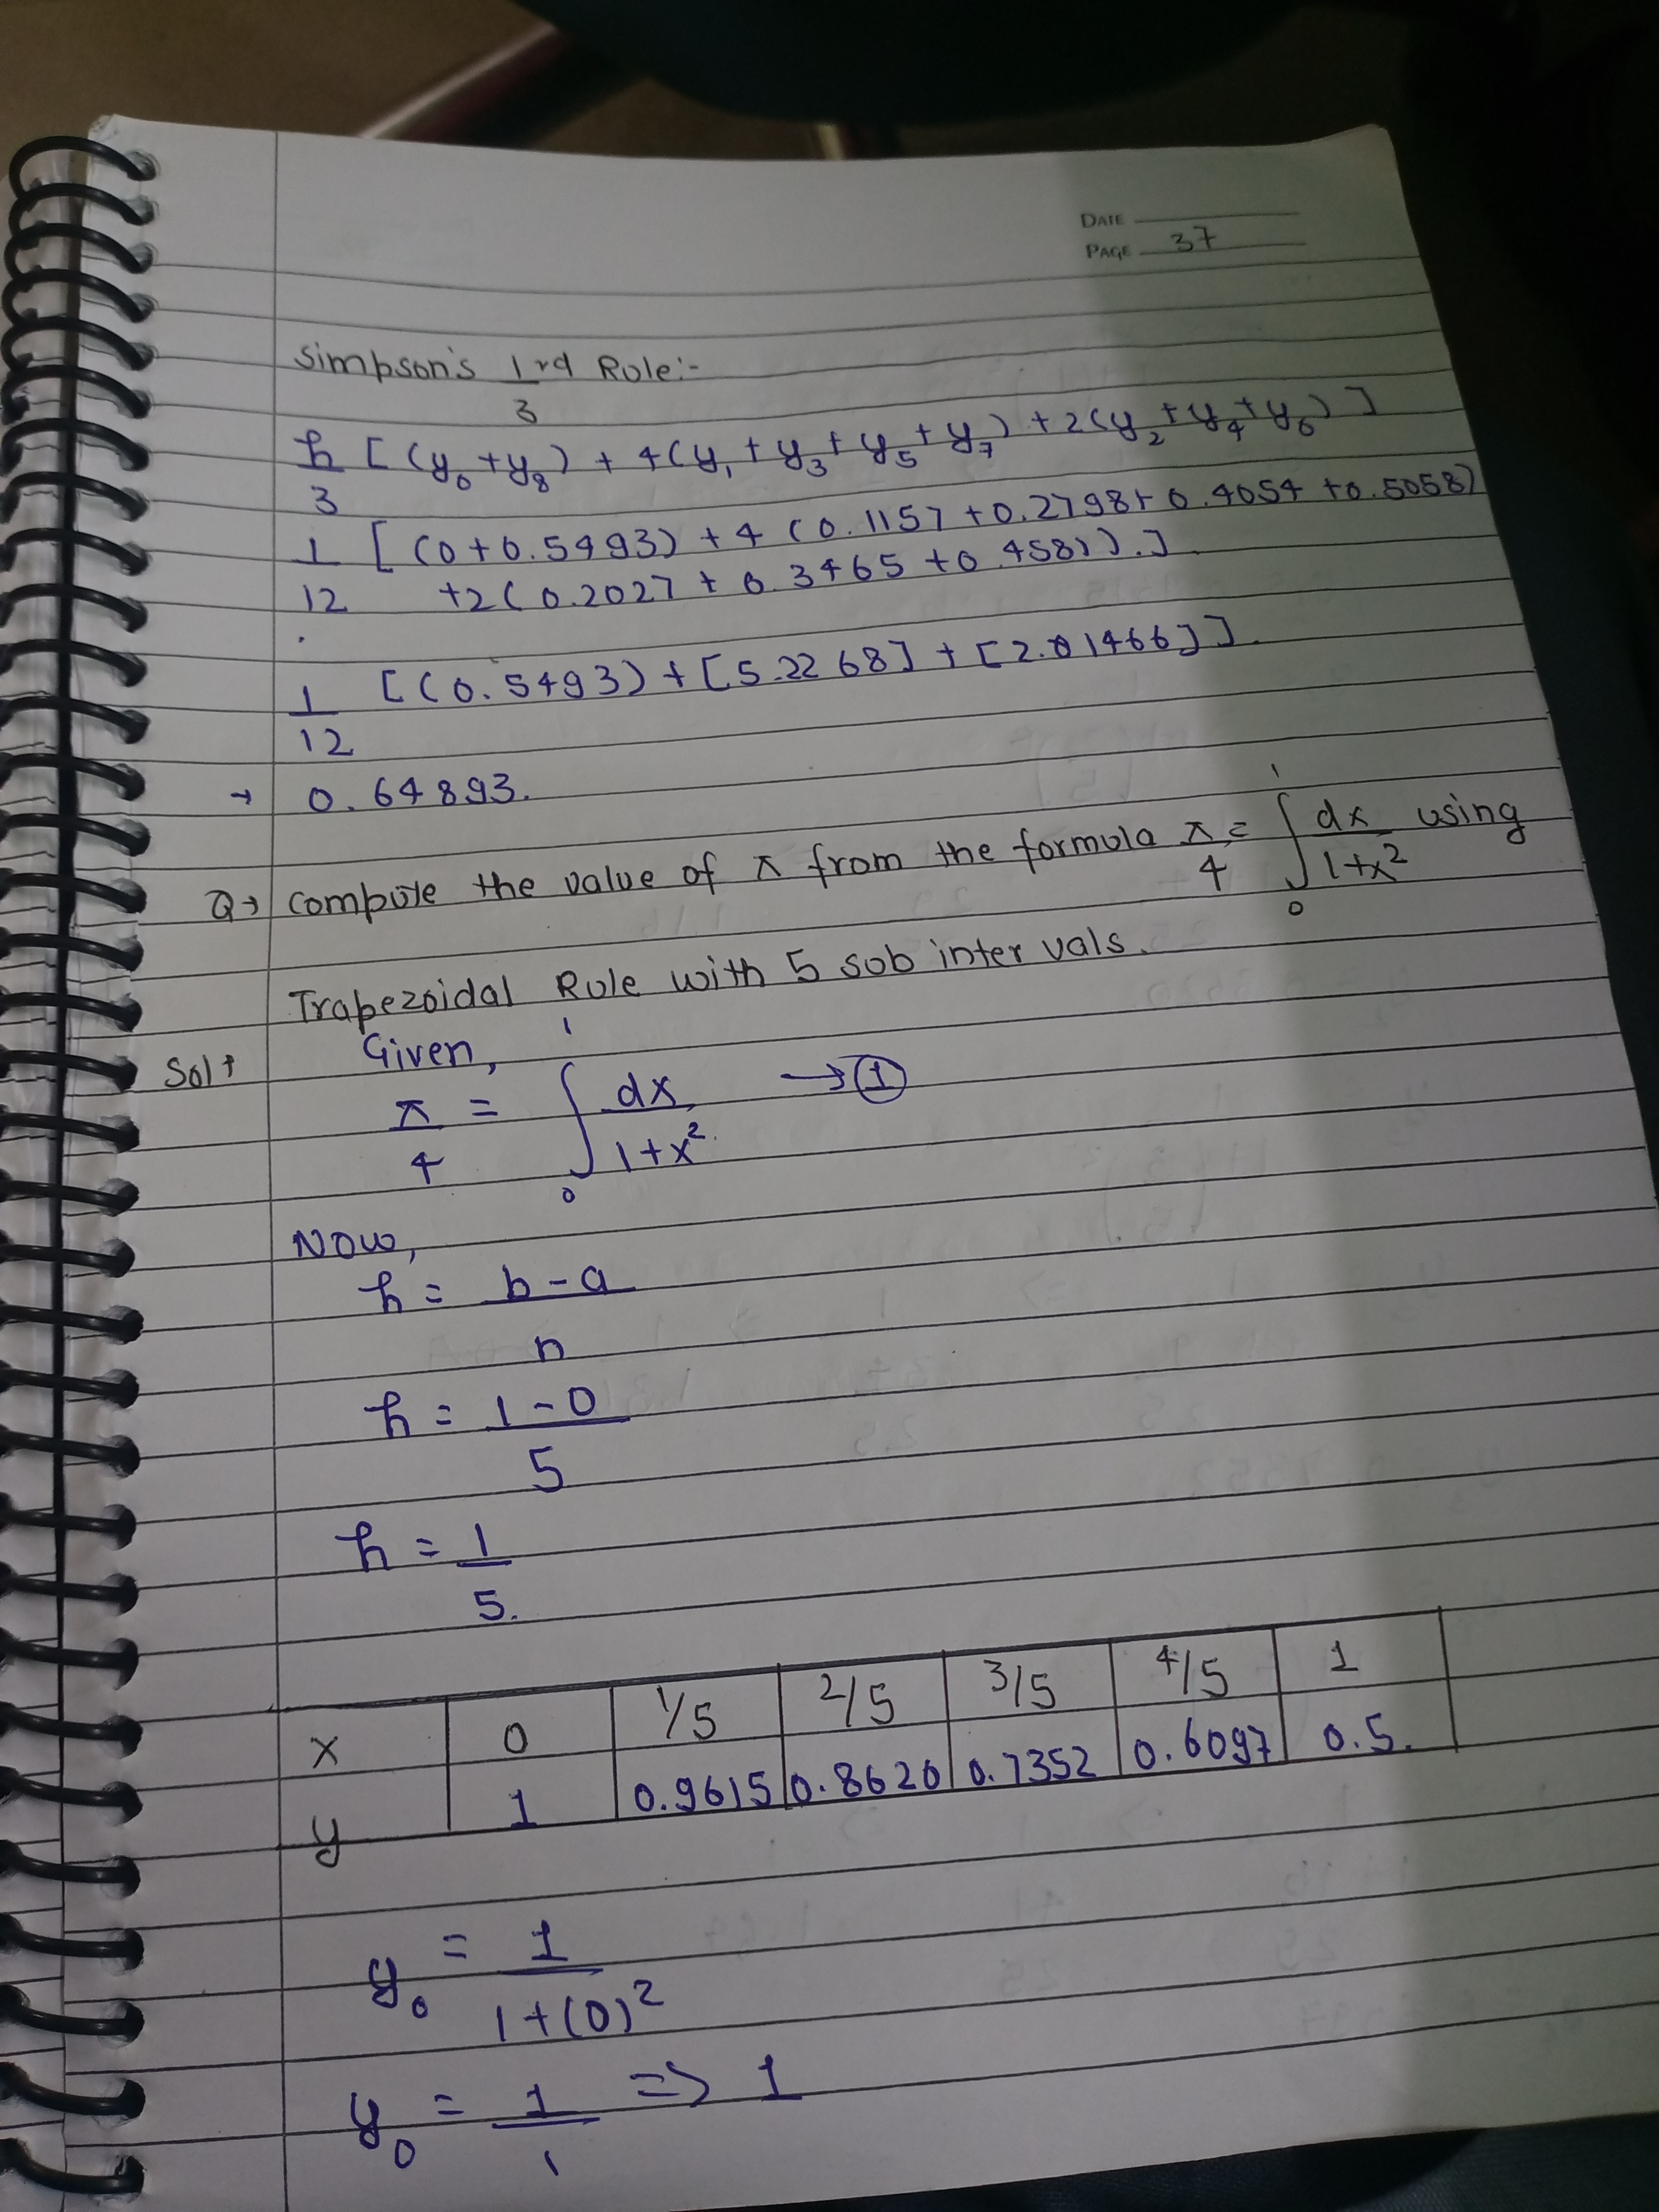 DATE
PAGE 37
Simpson's 1/3 rd Rule:-
h/3 [(y₀+y₈) + 4(y₁+y₃+y₅+y₇) + 2(y₂+y₄+y₆)]
1/12 [(0+0.5493) + 4(0.1157+0.2798+0.4054+0.5058)
+2(0.2027+0.3465+0.458)).]
1/12 [(0.5493)+[5.2268]+[2.01466]].
→ 0.64893.
Q→ Compute the value of π from the formula π/4 = ∫₀¹ dx/1+x² using
Trapezoidal Rule with 5 sub inter vals.
Sol→ Given,
π/4 = ∫₀¹ dx/1+x² → ①
Now,
h = b-a/n
h = 1-0/5
h = 1/5.
x 0 1/5 2/5 3/5 4/5 1
y 1 0.9615 0.8620 0.7352 0.6097 0.5.
y₀ = 1/1+(0)²
y₀ = 1/1 => 1